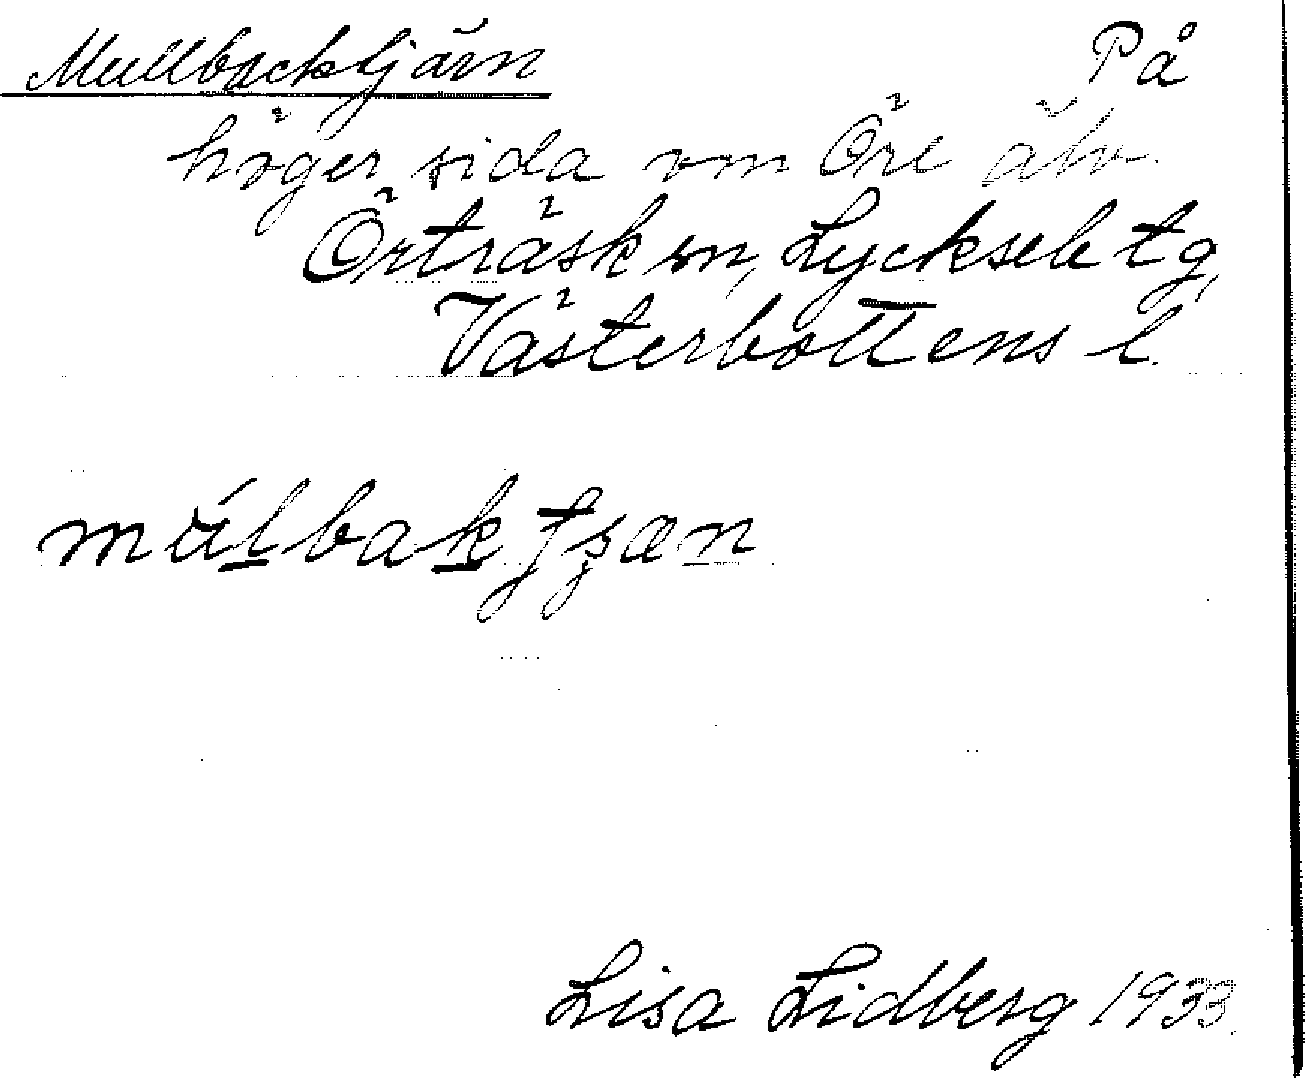 Mullbacktjärn På
höger sida om Öre älv.
Örträsk sn, Lycksele tg,
Västerbottens l.
múlbaktʃæn
Lisa Lidberg 1933.